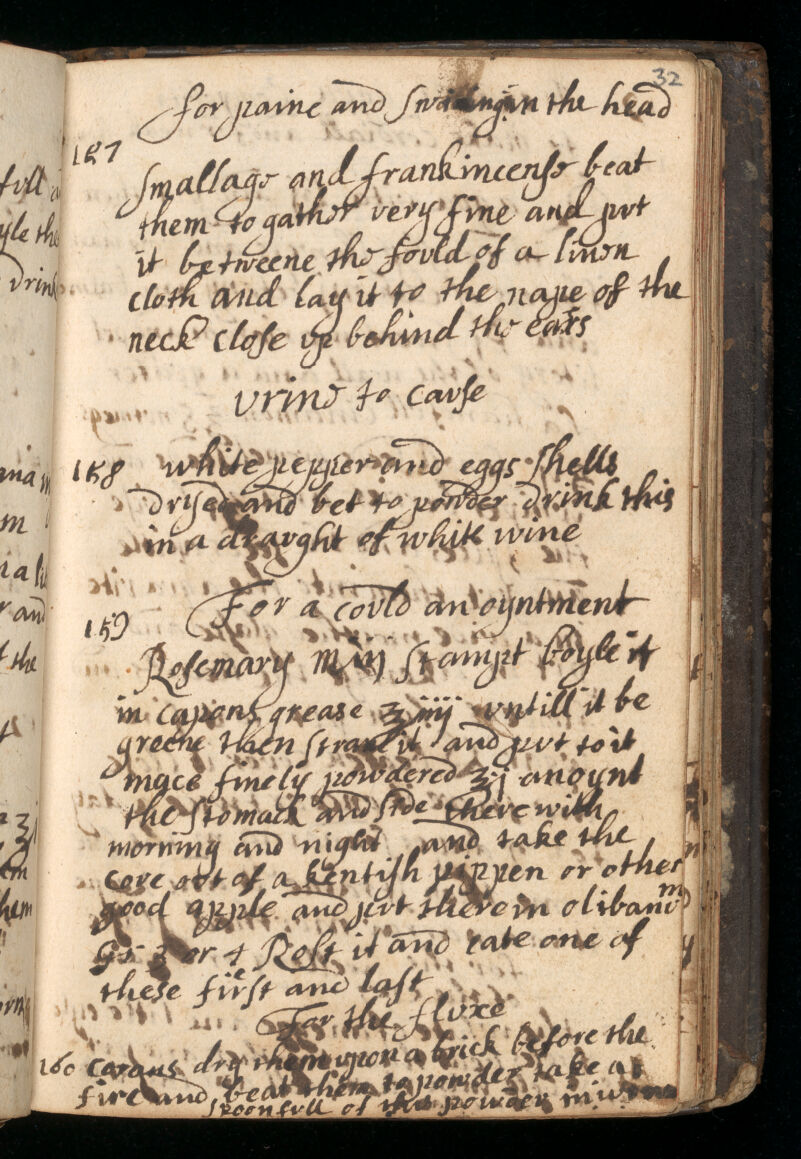 32
for paine and swimingin the head
157
smallage and frankincense beat
them to gather very fine and put
it betweene the fould of a linen
cloth and lay it to the nape of the
neck close up behind the ears
urine to cause
158 white pepper and eggs shells
dryed and bet to powder drink this
in a draught of white wine
For a could an oyntment
159
Rosemary M iij stampt boyle it
in capons grease ℥ iiij untill it be
greene then straine it and put to it
mace finely powdered ℥j anoynt
the stomack and side there with
morning and night and take the
core out of a kentish pippen or other
good apple and put therein olibanum
gs 3 or 4 Rost it and eate one of
these first and last
For the fluxe
160 dry them upon a brick before the
fire and beat them to powder take a
spoonfull of this powder in